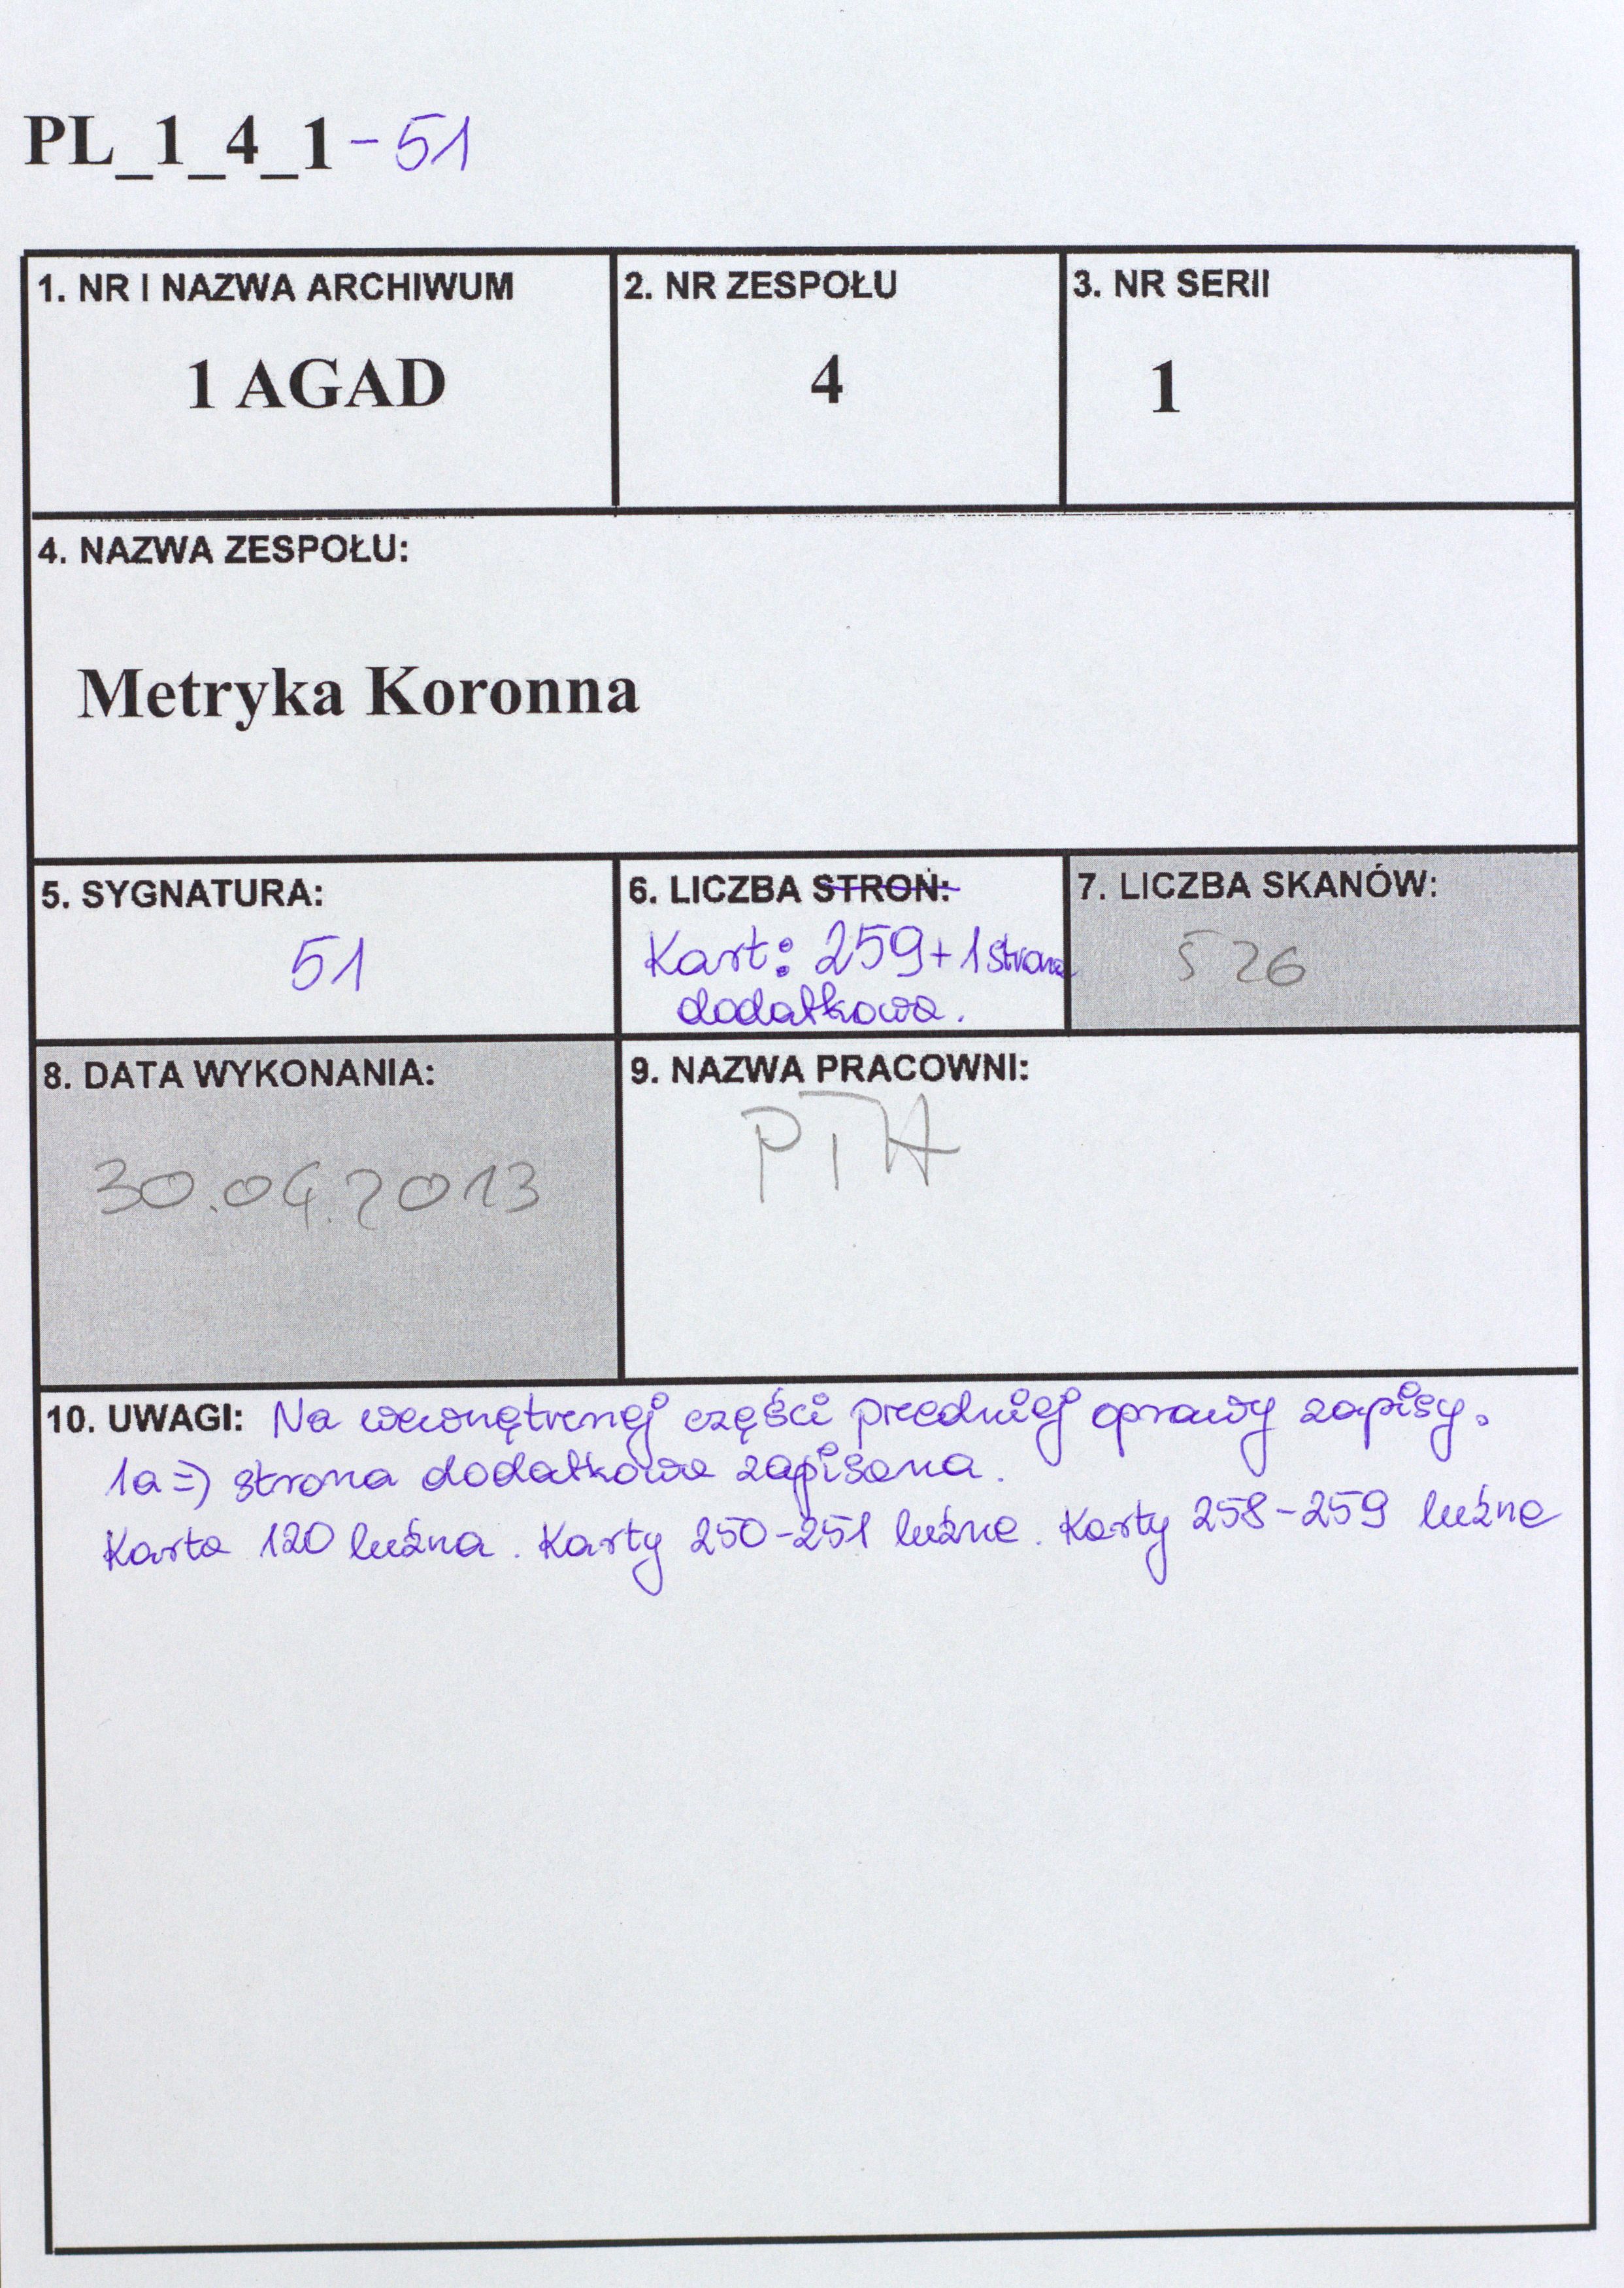 PL_1_4_1-51
1. NR I NAZWA ARCHIWUM
1 AGAD
2. NR ZESPOŁU
4
3. NR SERII
1
4. NAZWA ZESPOŁU:
Metryka Koronna
5. SYGNATURA:
51
6. LICZBA STRON:
Kart: 259+1 strona
dodatkowa.
7. LICZBA SKANÓW:
526
8. DATA WYKONANIA:
30.04.2013
9. NAZWA PRACOWNI:
PTH
10. UWAGI: Na wewnętrznej części przedniej oprawy zapisy.
1a => strona dodatkowa zapisana.
Karta 120 luźna. Karty 250-251 luźne. Karty 258-259 luźne